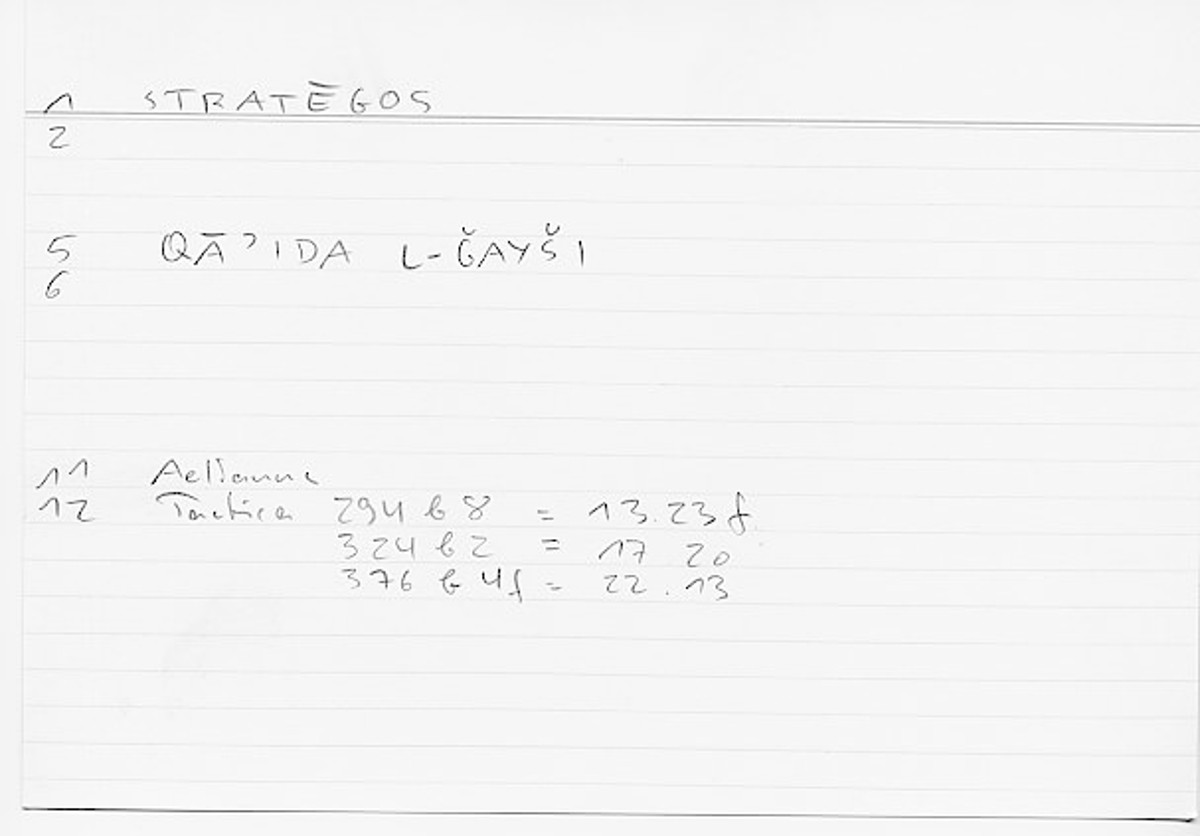 1 STRATĒGOS
2
5 QĀʾIDA L-ǦAYŠI
6
11 Aelianus
12 Tactica 294 b 8 = 13.23 f.
324 b 2 = 17 20
376 b 4 f = 22.13